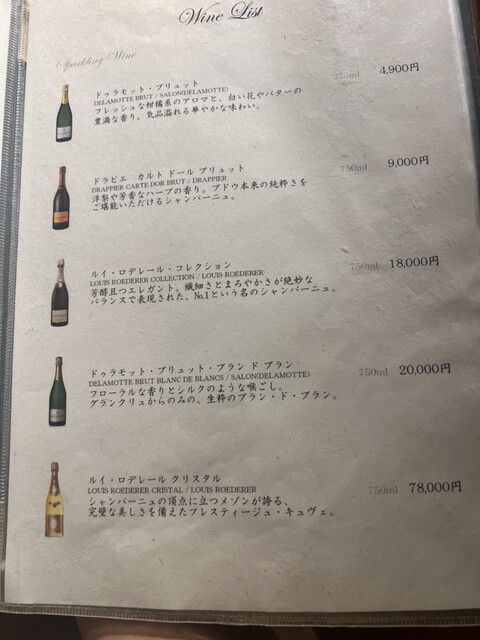 Wine List
Sparkling Wine
ドゥラモット・ブリュット 375ml 4,900円
DELAMOTTE BRUT / SALON(DELAMOTTE)
フレッシュな柑橘系のアロマと、白い花やバターの
豊満な香り。気品溢れる華やかな味わい。
ドラピエ カルト ドール ブリュット 750ml 9,000円
DRAPPIER CARTE DOR BRUT / DRAPPIER
洋梨や芳香なハーブの香り。ブドウ本来の純粋さを
ご堪能いただけるシャンパーニュ。
ルイ・ロデレール・コレクション 750ml 18,000円
LOUIS ROEDERER COLLECTION / LOUIS ROEDERER
芳醇且つエレガント。繊細さとまろやかさが絶妙な
バランスで表現された、No.1という名のシャンパーニュ。
ドゥラモット・ブリュット・ブラン ド ブラン 750ml 20,000円
DELAMOTTE BRUT BLANC DE BLANCS / SALON(DELAMOTTE)
フローラルな香りとシルクのような喉ごし。
グランクリュからのみの、生粋のブラン・ド・ブラン。
ルイ・ロデレール クリスタル 750ml 78,000円
LOUIS ROEDERER CRISTAL / LOUIS ROEDERER
シャンパーニュの頂点に立つメゾンが誇る、
完璧な美しさを備えたプレスティージュ・キュヴェ。